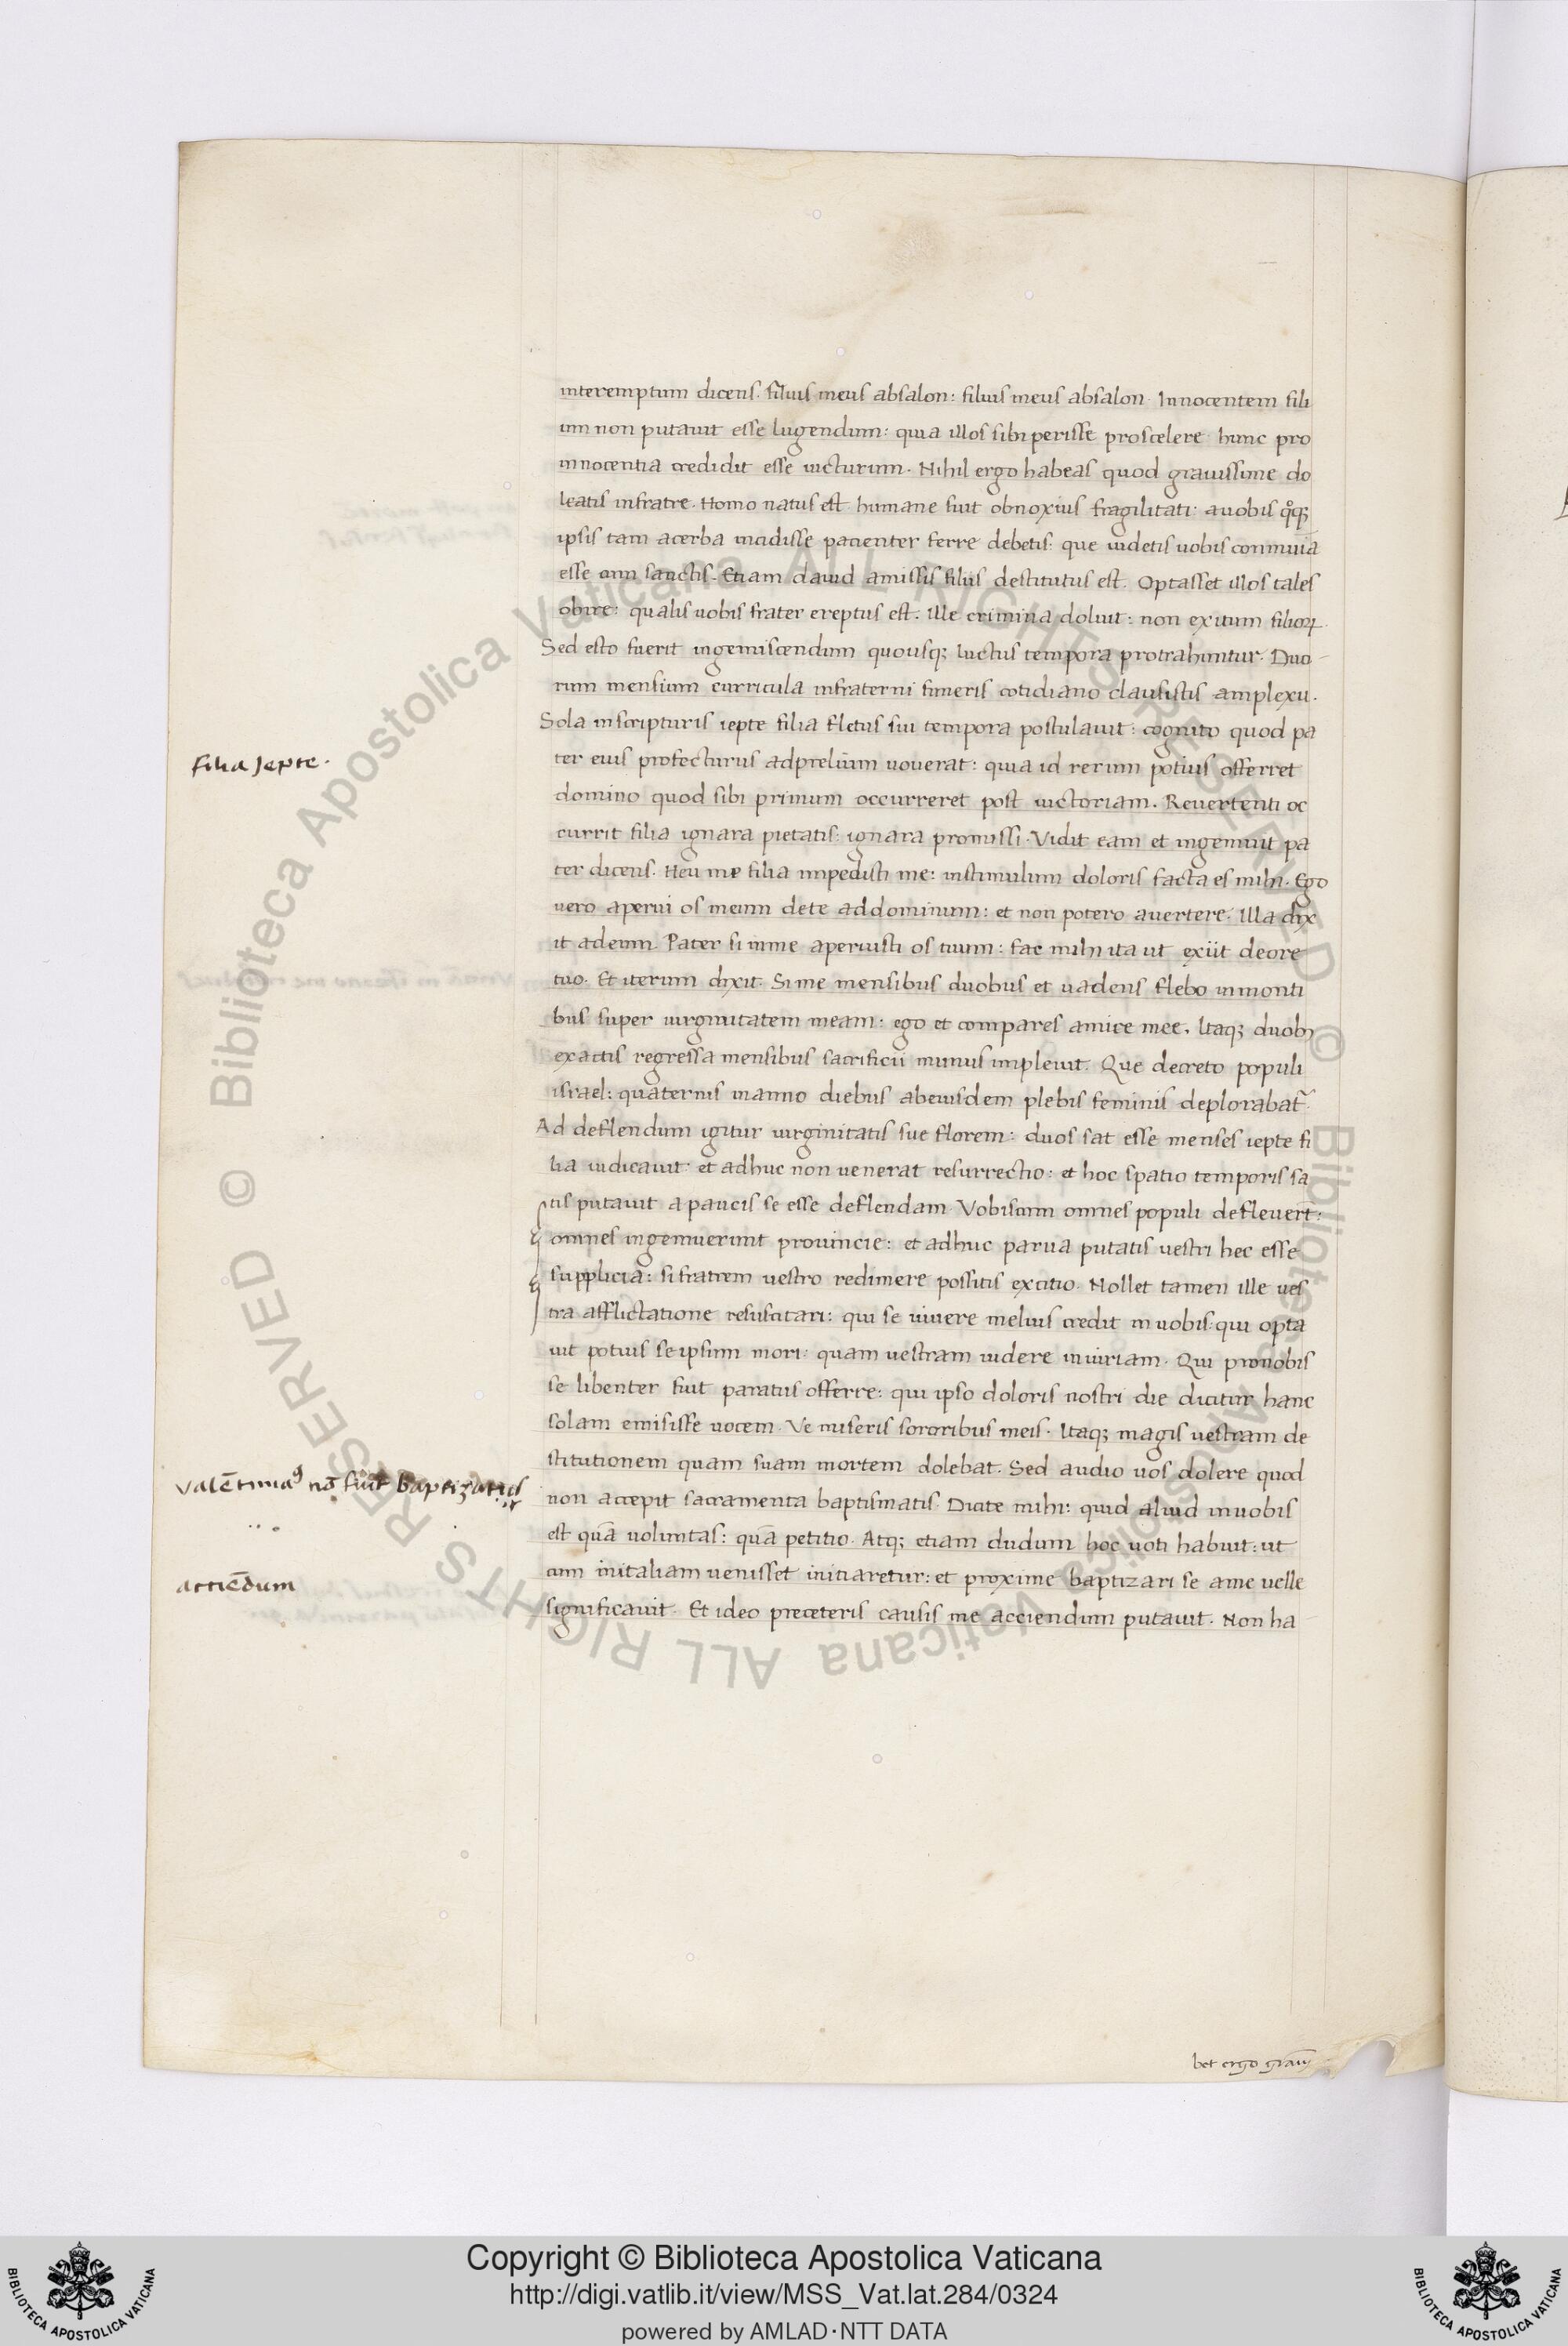 interemptum dicens. filius meus absalon: filius meus absalon. Innocentem fili
um non putauit esse lugendum: quia illos sibi perisse proscelere hunc pro
innocentia credidit esse uicturum. Nihil ergo habeas quod grauissime do
leatis infratre. Homo natus est humane fuit obnoxius fragilitati. auobis qͦq;
ipsis tam acerba incidisse pacienter ferre debetis: que uidetis uobis conmunia
esse cum sanctis. Etiam dauid amissis filiis destitutus est. Optasset illos tales
obire: qualis uobis frater ereptus est. ille crimina doluit: non exitum filioꝝ.
Sed esto fuerit ingemiscendum quousq; luctus tempora protrahuntur. Duo
rum mensium curricula infraterni funeris cotidiano clausistis amplexu.
Sola inscripturis iepte filia fletus sui tempora postulauit: cognito quod pa
filia Jepte.
ter eius profecturus adprelium uouerat: quia id rerum potius offerret
domino quod sibi primum occurreret post uictoriam. Reuertenti oc
currit filia ignara pietatis: ignara promissi. Vidit eam et ingemuit pa
ter dicens. Heu me filia impedisti me: instimulum doloris facta es mihi. Ego
uero aperui os meum dete addominum: et non potero auertere. Illa dix
it adeum. Pater si inme aperuisti os tuum: fac mihi ita ut exiit deore
tuo. Et iterum dixit. Sine mensibus duobus et uadens flebo inmonti
bus super uirginitatem meam: ego et compares amice mee. Itaq; duobꝫ
exactis regressa mensibus sacrificii munus impleuit. Que decreto populi
israel: quaternis inanno diebus abeiusdem plebis feminis deplorabat᷑.
Ad deflendum igitur uirginitatis sue florem: duos sat esse menses iepte fi
lia iudicauit: et adhuc non uenerat resurrectio: et hoc spatio temporis sa
tis putauit apaucis se esse deflendam. Vobiscum omnes populi defleuert̄:
omnes ingemuerunt prouincie: et adhuc parua putatis uestri hec esse
supplicia: si fratrem uestro redimere possitis excitio. Nollet tamen ille ues
tra afflictatione resuscitari: qui se uiuere melius credit in uobis: qui opta
uit potius seipsum mori: quam uestram uidere iniuriam. Qui prouobis
se libenter fuit paratus offerre: qui ipso doloris nostri die dicitur hanc
solam emisisse uocem. Ve miseris sororibus meis. Itaq; magis uestram de
stitutionem quam suam mortem dolebat. Sed audio uos dolere quod
valētinia⁹ nō fuit baptizatus
non accepit sacramenta baptismatis. Dicite mihi: quid aliud inuobis
est quā voluntas: quā petitio. Atq; etiam dudum hoc uoti habuit: ut
cum initaliam uenisset initiaretur: et proxime baptizari se ame uelle
acciēdum
significauit. Et ideo preceteris causis me acciendum putauit. Non ha
bet ergo
Copyright © Biblioteca Apostolica Vaticana
http://digi.vatlib.it/view/MSS_Vat.lat.284/0324
powered by AMLAD·NTT DATA
BIBLIOTECA APOSTOLICA VATICANA
BIBLIOTECA APOSTOLICA VATICANA
© Biblioteca Apostolica Vaticana ALL RIGHTS RESERVED
© Biblioteca Apostolica Vaticana ALL RIGHTS RESERVED